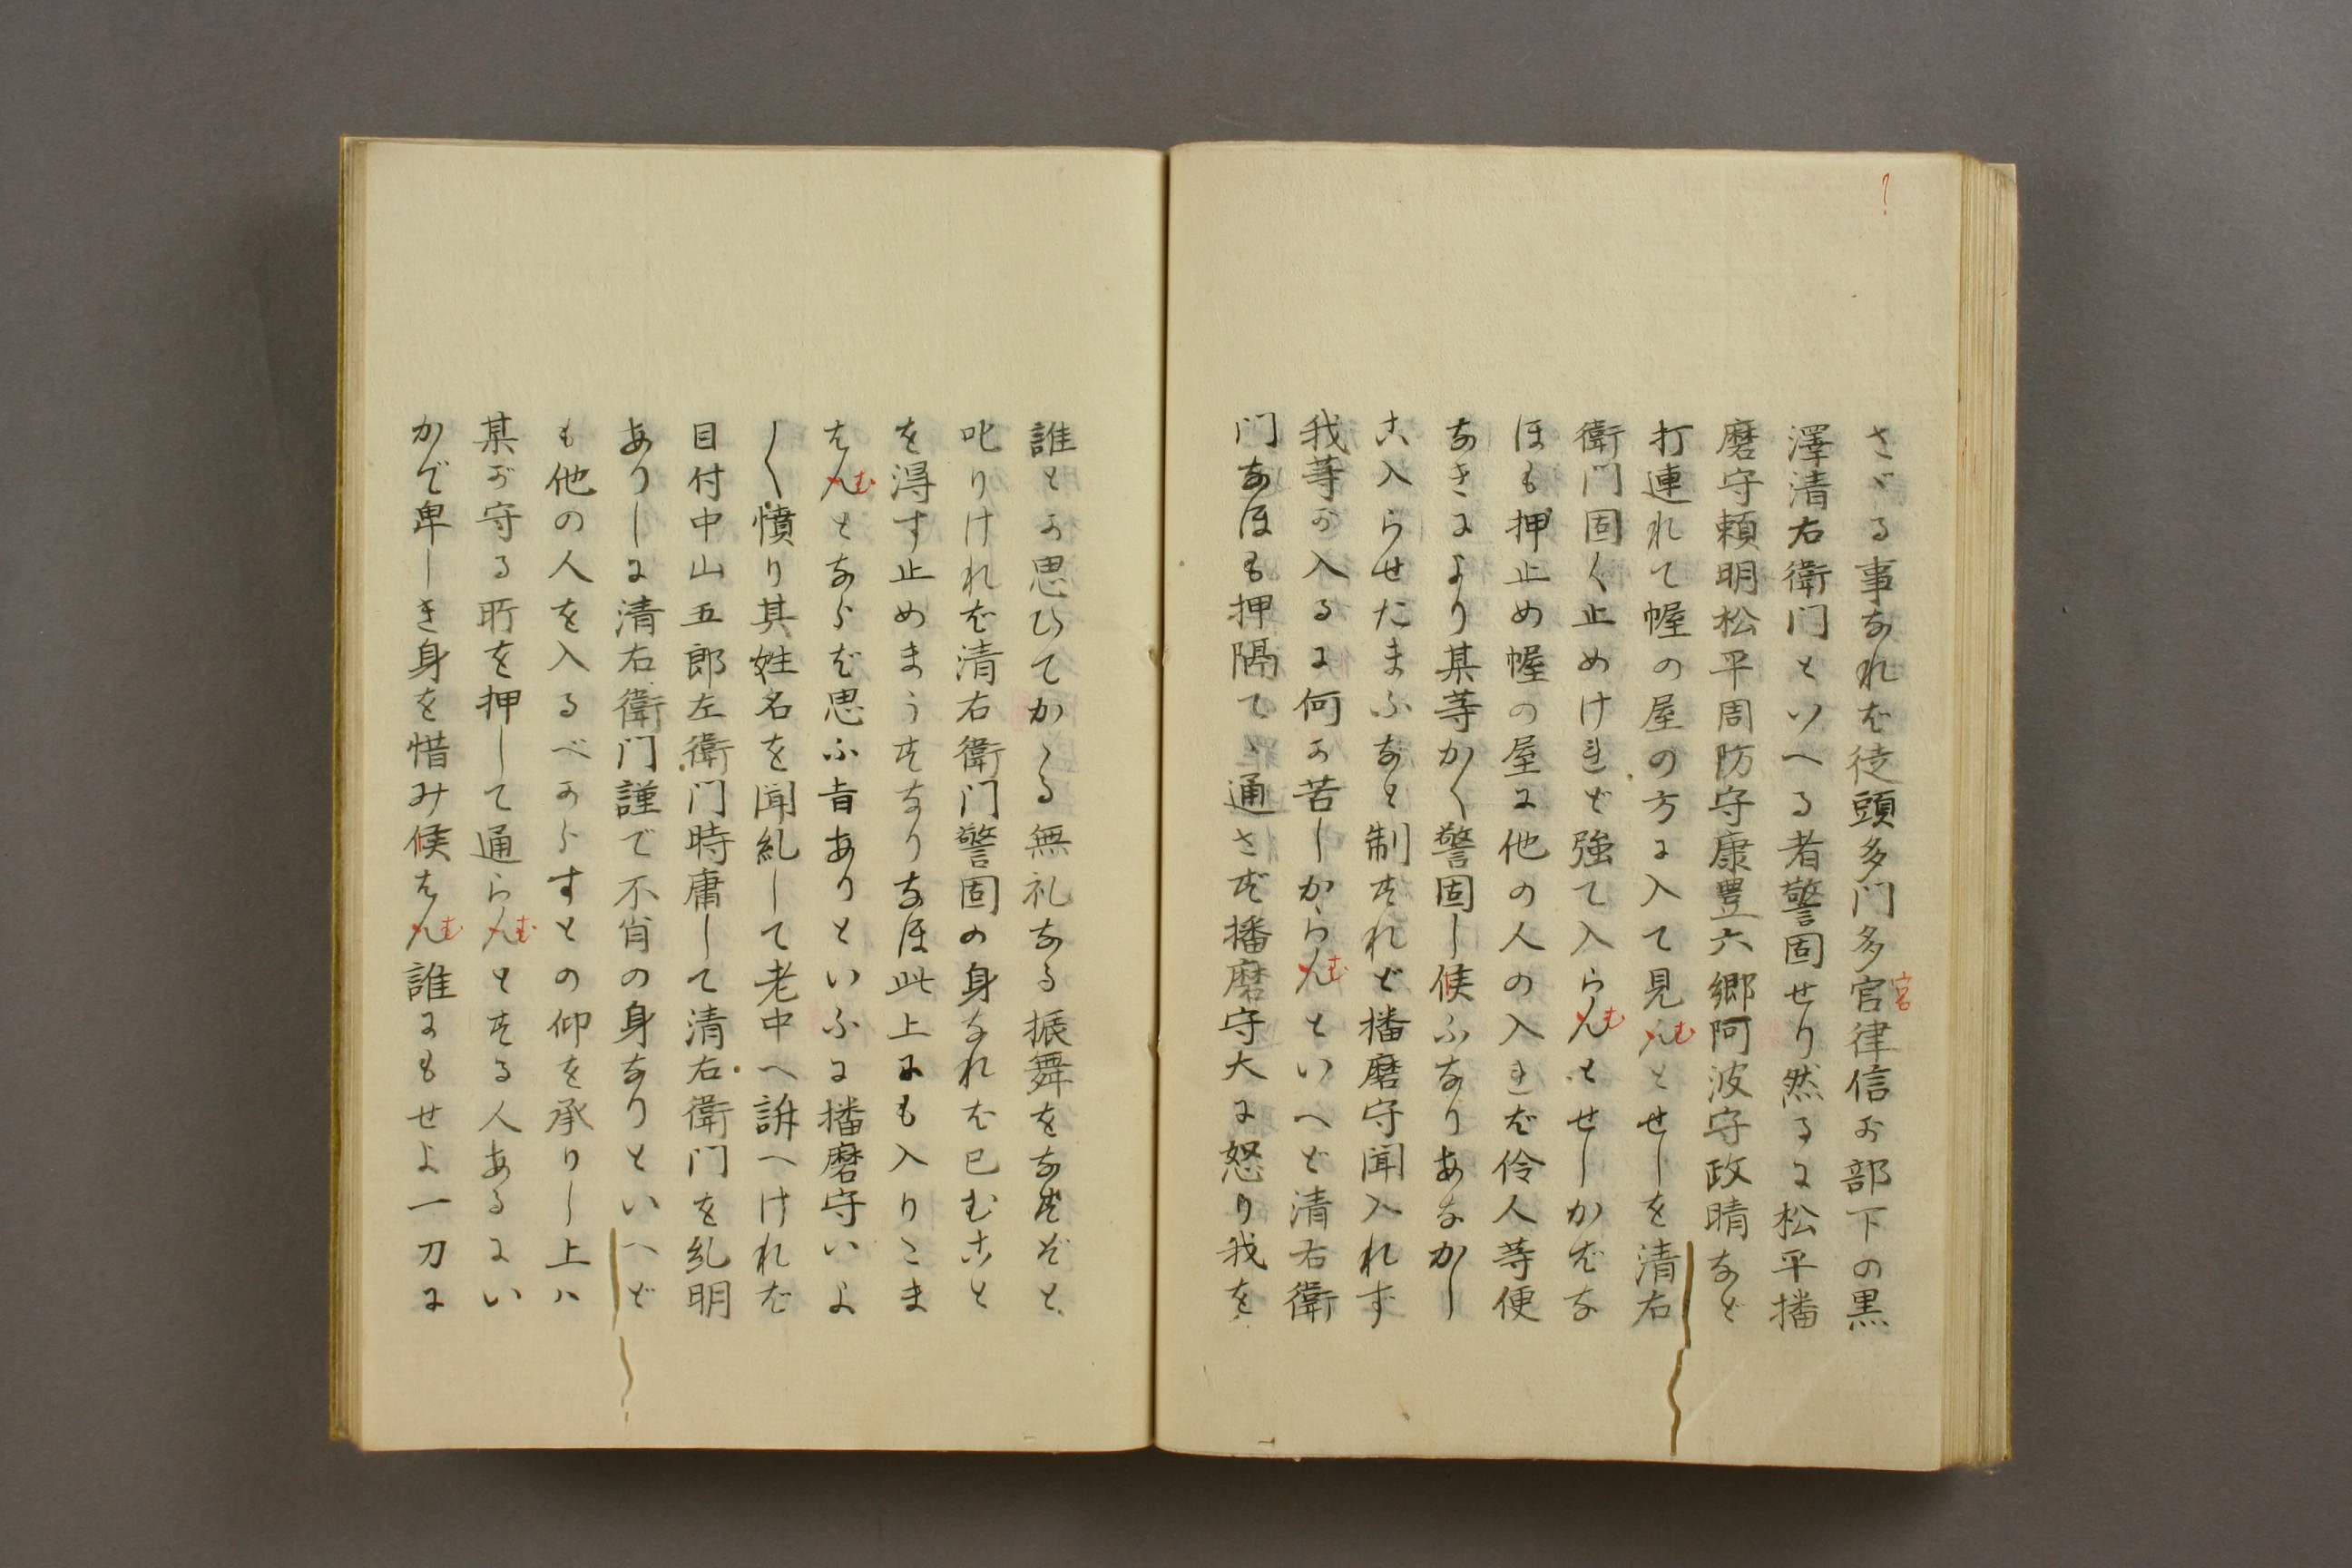 さゞる事なれば徒頭多門多官律信が部下の黒
宮
澤清右衛門といへる者警固せり然るに松平播
磨守頼明松平周防守康豊六郷阿波守政晴など
打連れて幄の屋の方に入て見んとせしを清右
む
衛門固く止めけれど強て入らんとせしかばな
む
ほも押止め幄の屋に他の人の入れば伶人等便
なきにより某等かく警固し候ふなりあなかし
こ入らせたまふなと制すれど播磨守聞入れず
我等が入るに何か苦しからんといへど清右衛
む
門なほも押隔てゝ通さず播磨守大に怒り我を
誰とか思ひてかゝる無礼なる振舞をなすぞと
叱りければ清右衛門警固の身なれば已むこと
を得す止めまうすなりなほ此上にも入りこま
はんとならば思ふ旨ありといふに播磨守いよ
む
〱憤り其姓名を聞糺して老中へ訴へければ
目付中山五郎左衛門時庸して清右衛門を糺明
ありしに清右衛門謹で不肖の身なりといへど
も他の人を入るべからすとの仰を承りし上ハ
某が守る所を押して通らんとする人あるにい
む
かで卑しき身を惜み候はん誰にもせよ一刀に
む